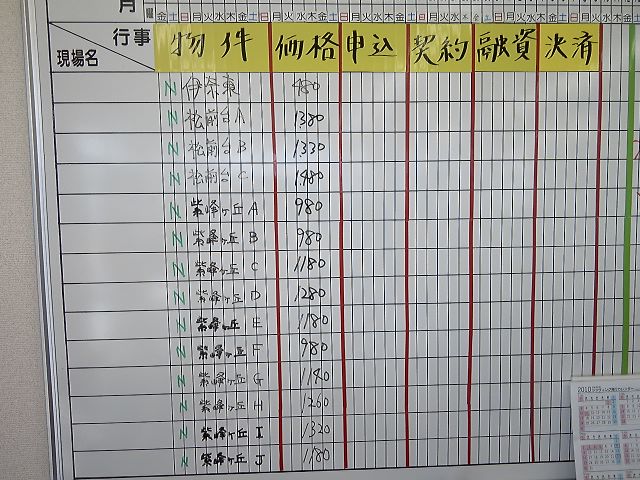 月
曜 金 土 日 月 火 水 木 金 土 日 月 火 水 木 金 土 日 月 火 水 木 金 土 日 月 火 水 木 金 土 日
行事
現場名
物件 価格 申込 契約 融資 決済
N 伊奈東 480
N 松前台A 1380
N 松前台B 1330
N 松前台C 1480
N 紫峰ヶ丘A 980
N 紫峰ヶ丘B 980
N 紫峰ヶ丘C 1180
N 紫峰ヶ丘D 1280
N 紫峰ヶ丘E 1180
N 紫峰ヶ丘F 980
N 紫峰ヶ丘G 1140
N 紫峰ヶ丘H 1260
N 紫峰ヶ丘I 1320
N 紫峰ヶ丘J 1180
2010